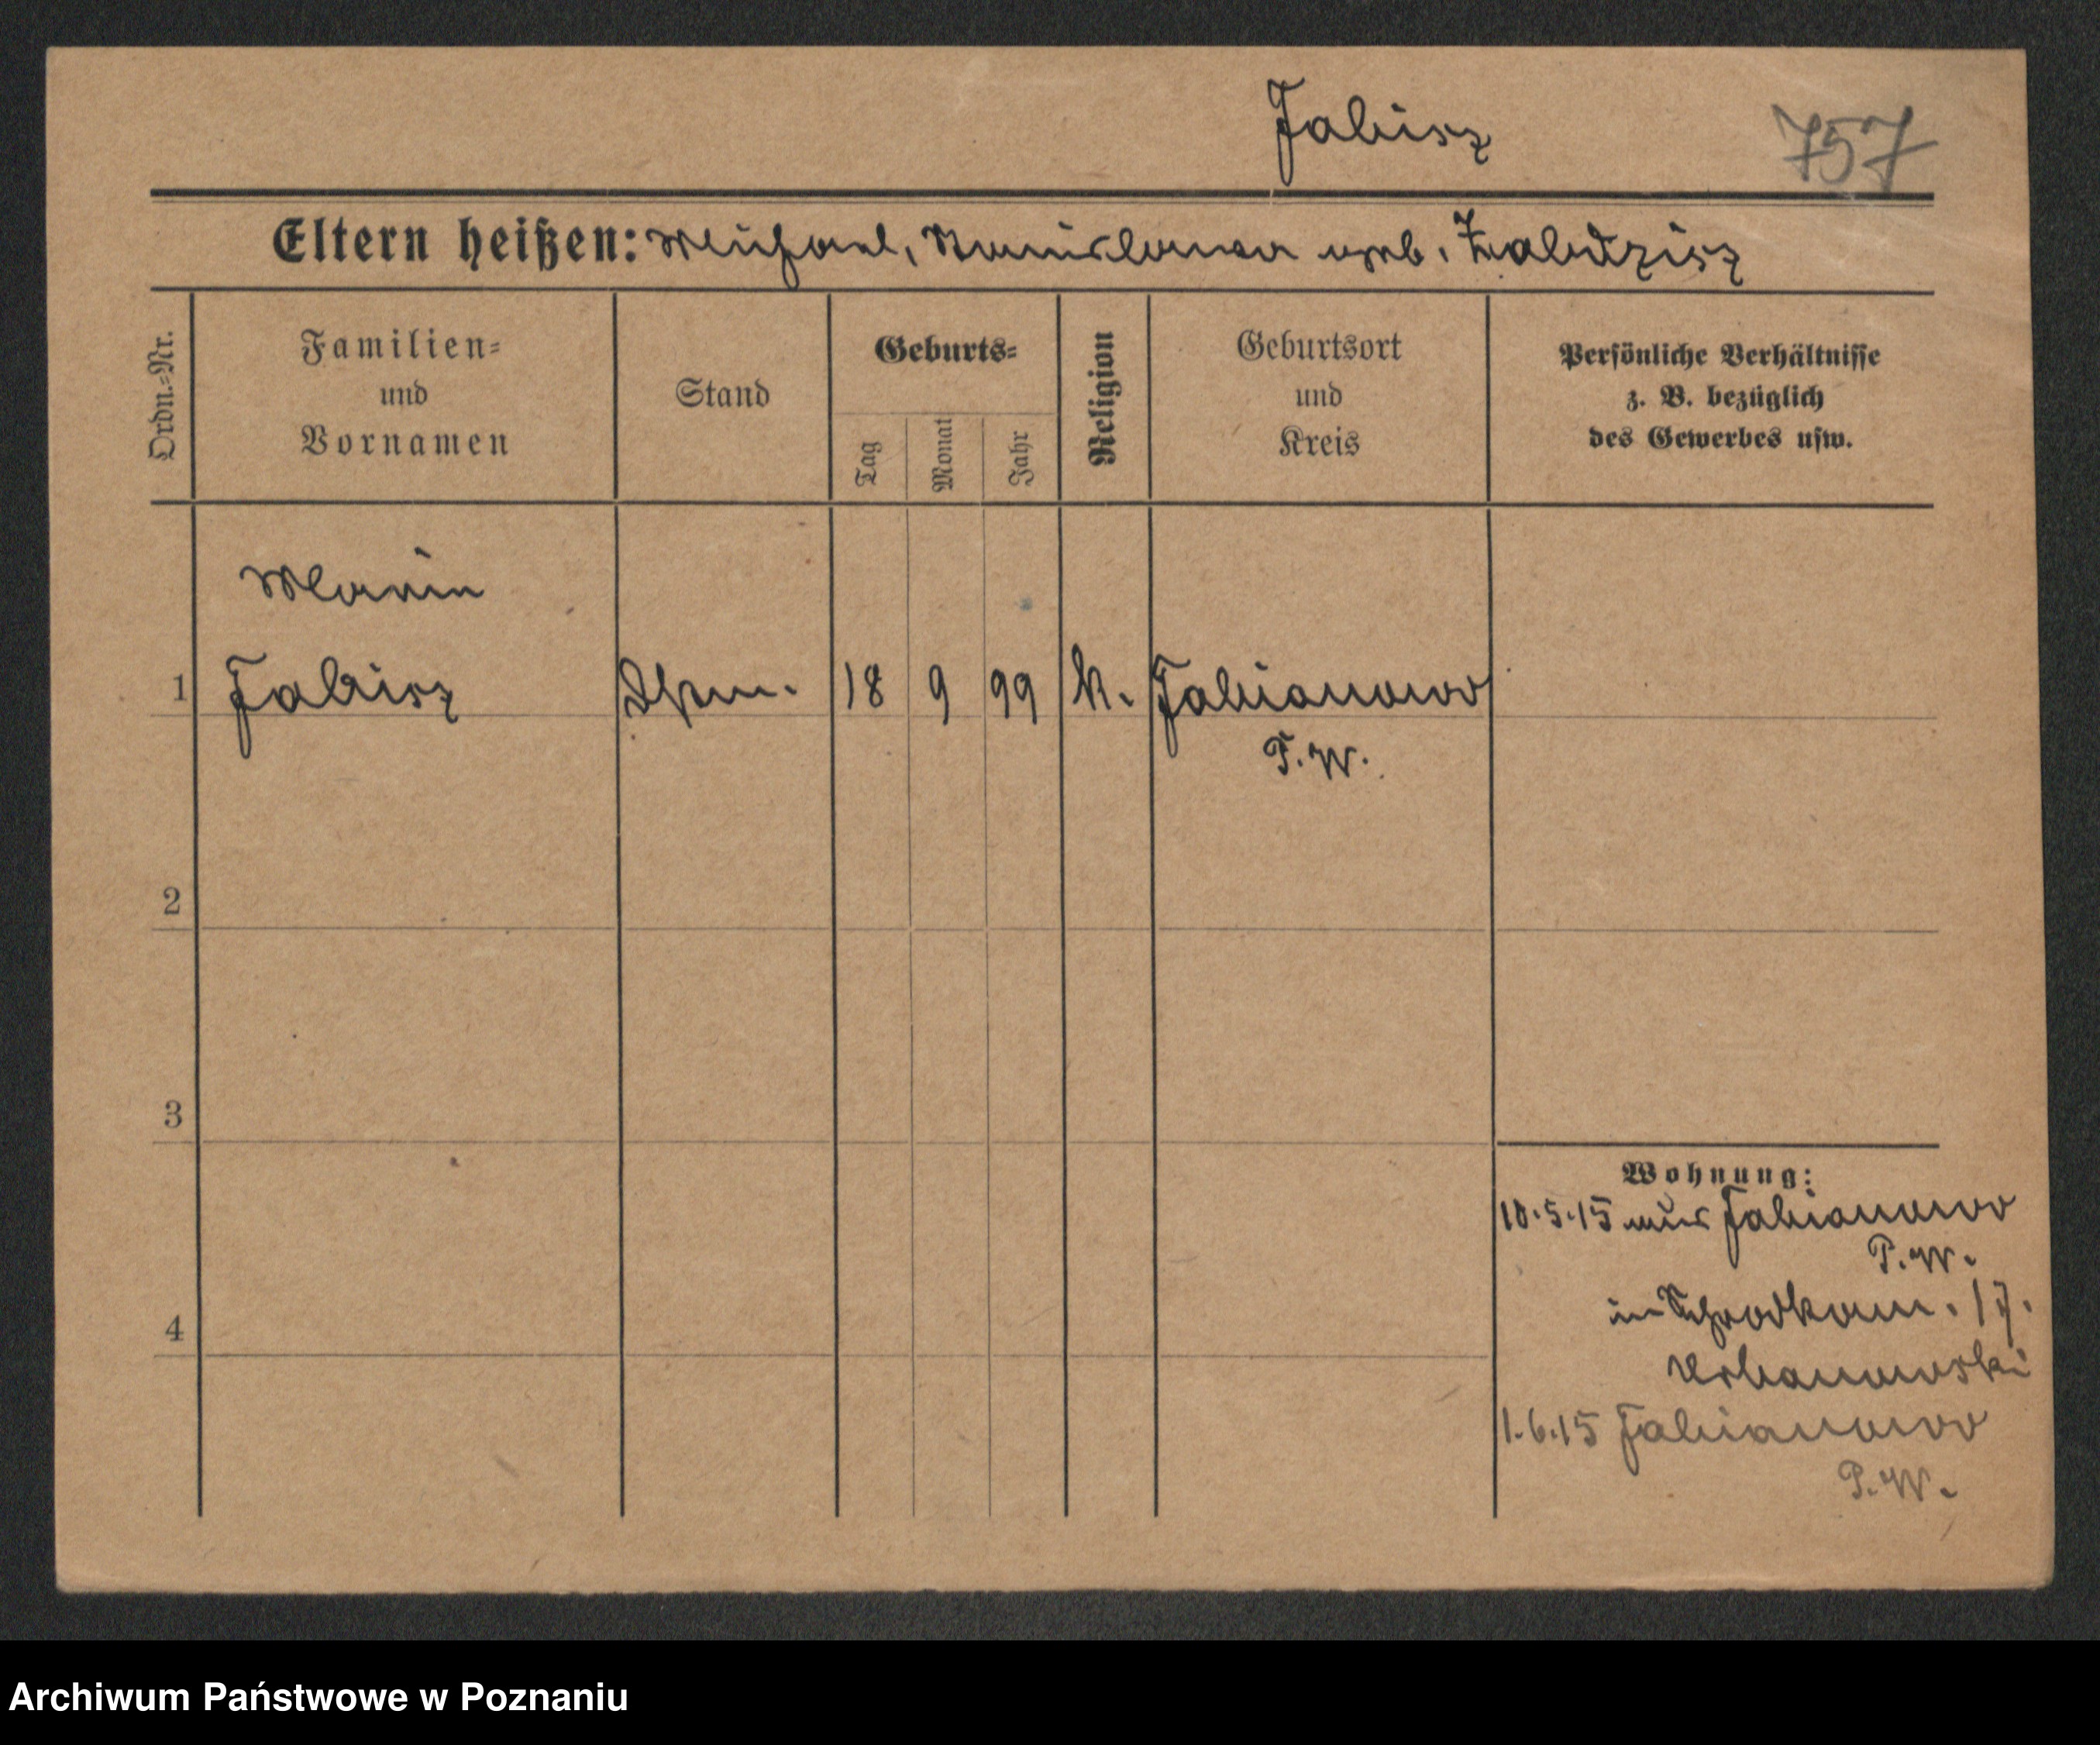 Fabisz
757
Eltern heißen: Michael, Stanislawa geb.
Ordn.-Nr.
Familien-
und
Vornamen
Stand
Geburts-
Tag
Monat
Jahr
Religion
Geburtsort
und
Kreis
Persönliche Verhältnisse
z. B. bezüglich
des Gewerbes usw.
Maria
1 Fabisz 18 9 99 k. Fabianowo
P. W.
2
3
4
Wohnung:
10.5.15 aus Fabianowo
P. W.
in 17.
Urbanowski
1.6.15 Fabianowo
P. W.
Archiwum Państwowe w Poznaniu